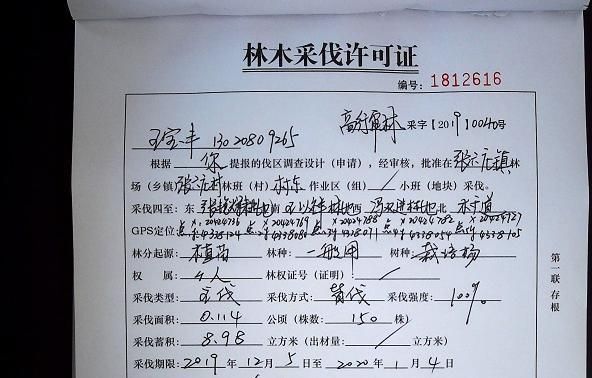 林木采伐许可证
编号：1812616
采字【2019】0040号
王宝丰 13020809265
根据 你 提报的伐区调查设计（申请），经审核，批准在 张六庄镇 林
场（乡镇）张六庄村 林班（村）村东 作业区（组） / 小班（地块）采伐。
采伐四至：东 林地 南 林地 西 林地 北 水道
GPS定位
林分起源：植苗 林种：一般用 树种：栽培杨
权 属：个人 林权证号（证明）：/
采伐类型：主伐 采伐方式：皆伐 采伐强度：100%
采伐面积：0.114 公顷（株数：150 株）
采伐蓄积：8.98 立方米（出材量：/ 立方米）
采伐期限：2019 年 12 月 5 日至 2020 年 1 月 4 日
第一联 存根